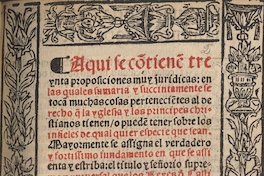 Aqui se cõtienẽ tre
ynta proposiciones muy juridicas: en
las quales sumaria y succintamente se
toca muchas cosas pertenecientes al de
recho q̃ la yglesia y los principes chri
stianos tienen/o puedẽ tener sobre los
infieles de qual quier especie que sean.
Mayormente se assigna el verdadero
y fortissimo fundamento en que se assi
enta y estriba: el titulo y señorio supre